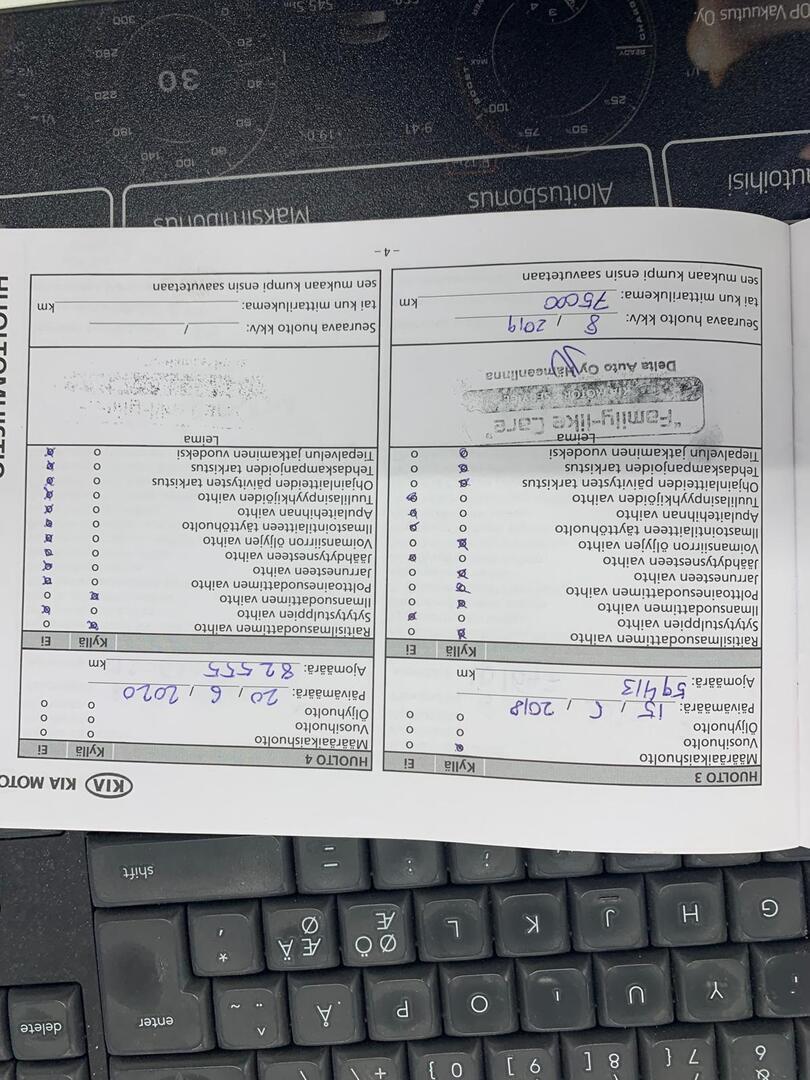 6 & 7 { 8 [ 9 ] 0 } + \
Y U I O P Å ^ ¨ ~ enter delete
G H J K L Ø Ö Æ Æ Ä Ø * '
; : _ - shift
KIA KIA MOTO
HUOLTO 3 Kyllä Ei
Määräaikaishuolto
Vuosihuolto
Öljyhuolto
Päivämäärä: 15 / 5 / 2018
Ajomäärä: 59413 km
Kyllä Ei
Raitisilmasuodattimen vaihto
Sytytystulppien vaihto
Ilmansuodattimen vaihto
Polttoainesuodattimen vaihto
Jarrunesteen vaihto
Jäähdytysnesteen vaihto
Voimansiirron öljyjen vaihto
Ilmastointilaitteen täyttöhuolto
Apulaitehihnan vaihto
Tuulilasinpyyhkijöiden vaihto
Ohjainlaitteiden päivitysten tarkistus
Tehdaskampanjoiden tarkistus
Tiepalvelun jatkaminen vuodeksi
Leima
"Family-like Care"
Delta Auto Oy Hämeenlinna
Seuraava huolto kk/v: 8 / 2019
tai kun mittarilukema: 75000 km
sen mukaan kumpi ensin saavutetaan
HUOLTO 4 Kyllä Ei
Määräaikaishuolto
Vuosihuolto
Öljyhuolto
Päivämäärä: 20 / 6 / 2020
Ajomäärä: 82555 km
Kyllä Ei
Raitisilmasuodattimen vaihto
Sytytystulppien vaihto
Ilmansuodattimen vaihto
Polttoainesuodattimen vaihto
Jarrunesteen vaihto
Jäähdytysnesteen vaihto
Voimansiirron öljyjen vaihto
Ilmastointilaitteen täyttöhuolto
Apulaitehihnan vaihto
Tuulilasinpyyhkijöiden vaihto
Ohjainlaitteiden päivitysten tarkistus
Tehdaskampanjoiden tarkistus
Tiepalvelun jatkaminen vuodeksi
Leima
Seuraava huolto kk/v: /
tai kun mittarilukema: km
sen mukaan kumpi ensin saavutetaan
- 4 -
autoihisi Aloitusbonus Maksimibonus
25% 50% 75% 100% MAX
READY CHARGE
9:41 +19.0°
20 40 60 100 140 180 220 260 300
30
OP Vakuutus Oy.